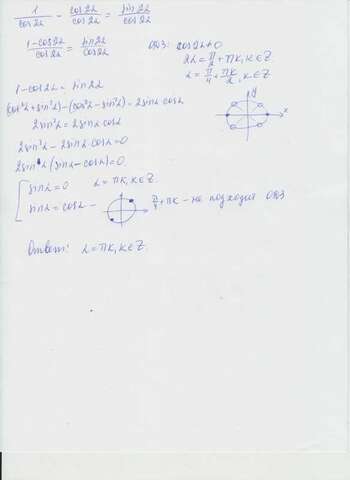 1/cos2α - cos2α/cos2α = sin2α/cos2α
(1-cos2α)/cos2α = sin2α/cos2α
ОДЗ: cos2α≠0
2α = π/2 + πk, k∈Z.
α = π/4 + πk/2, k∈Z
y
x
1-cos2α = sin2α
(cos²α+sin²α)-(cos²α-sin²α) - 2sinα cosα
2sin²α = 2sinα cosα
2sin²α - 2sinα·cosα = 0
2sinα (sinα - cosα) = 0
[ sinα = 0   α = πk, k∈Z.
sinα = cosα - π/4 + πk - не подходит ОДЗ
Ответ: α = πk, k∈Z.